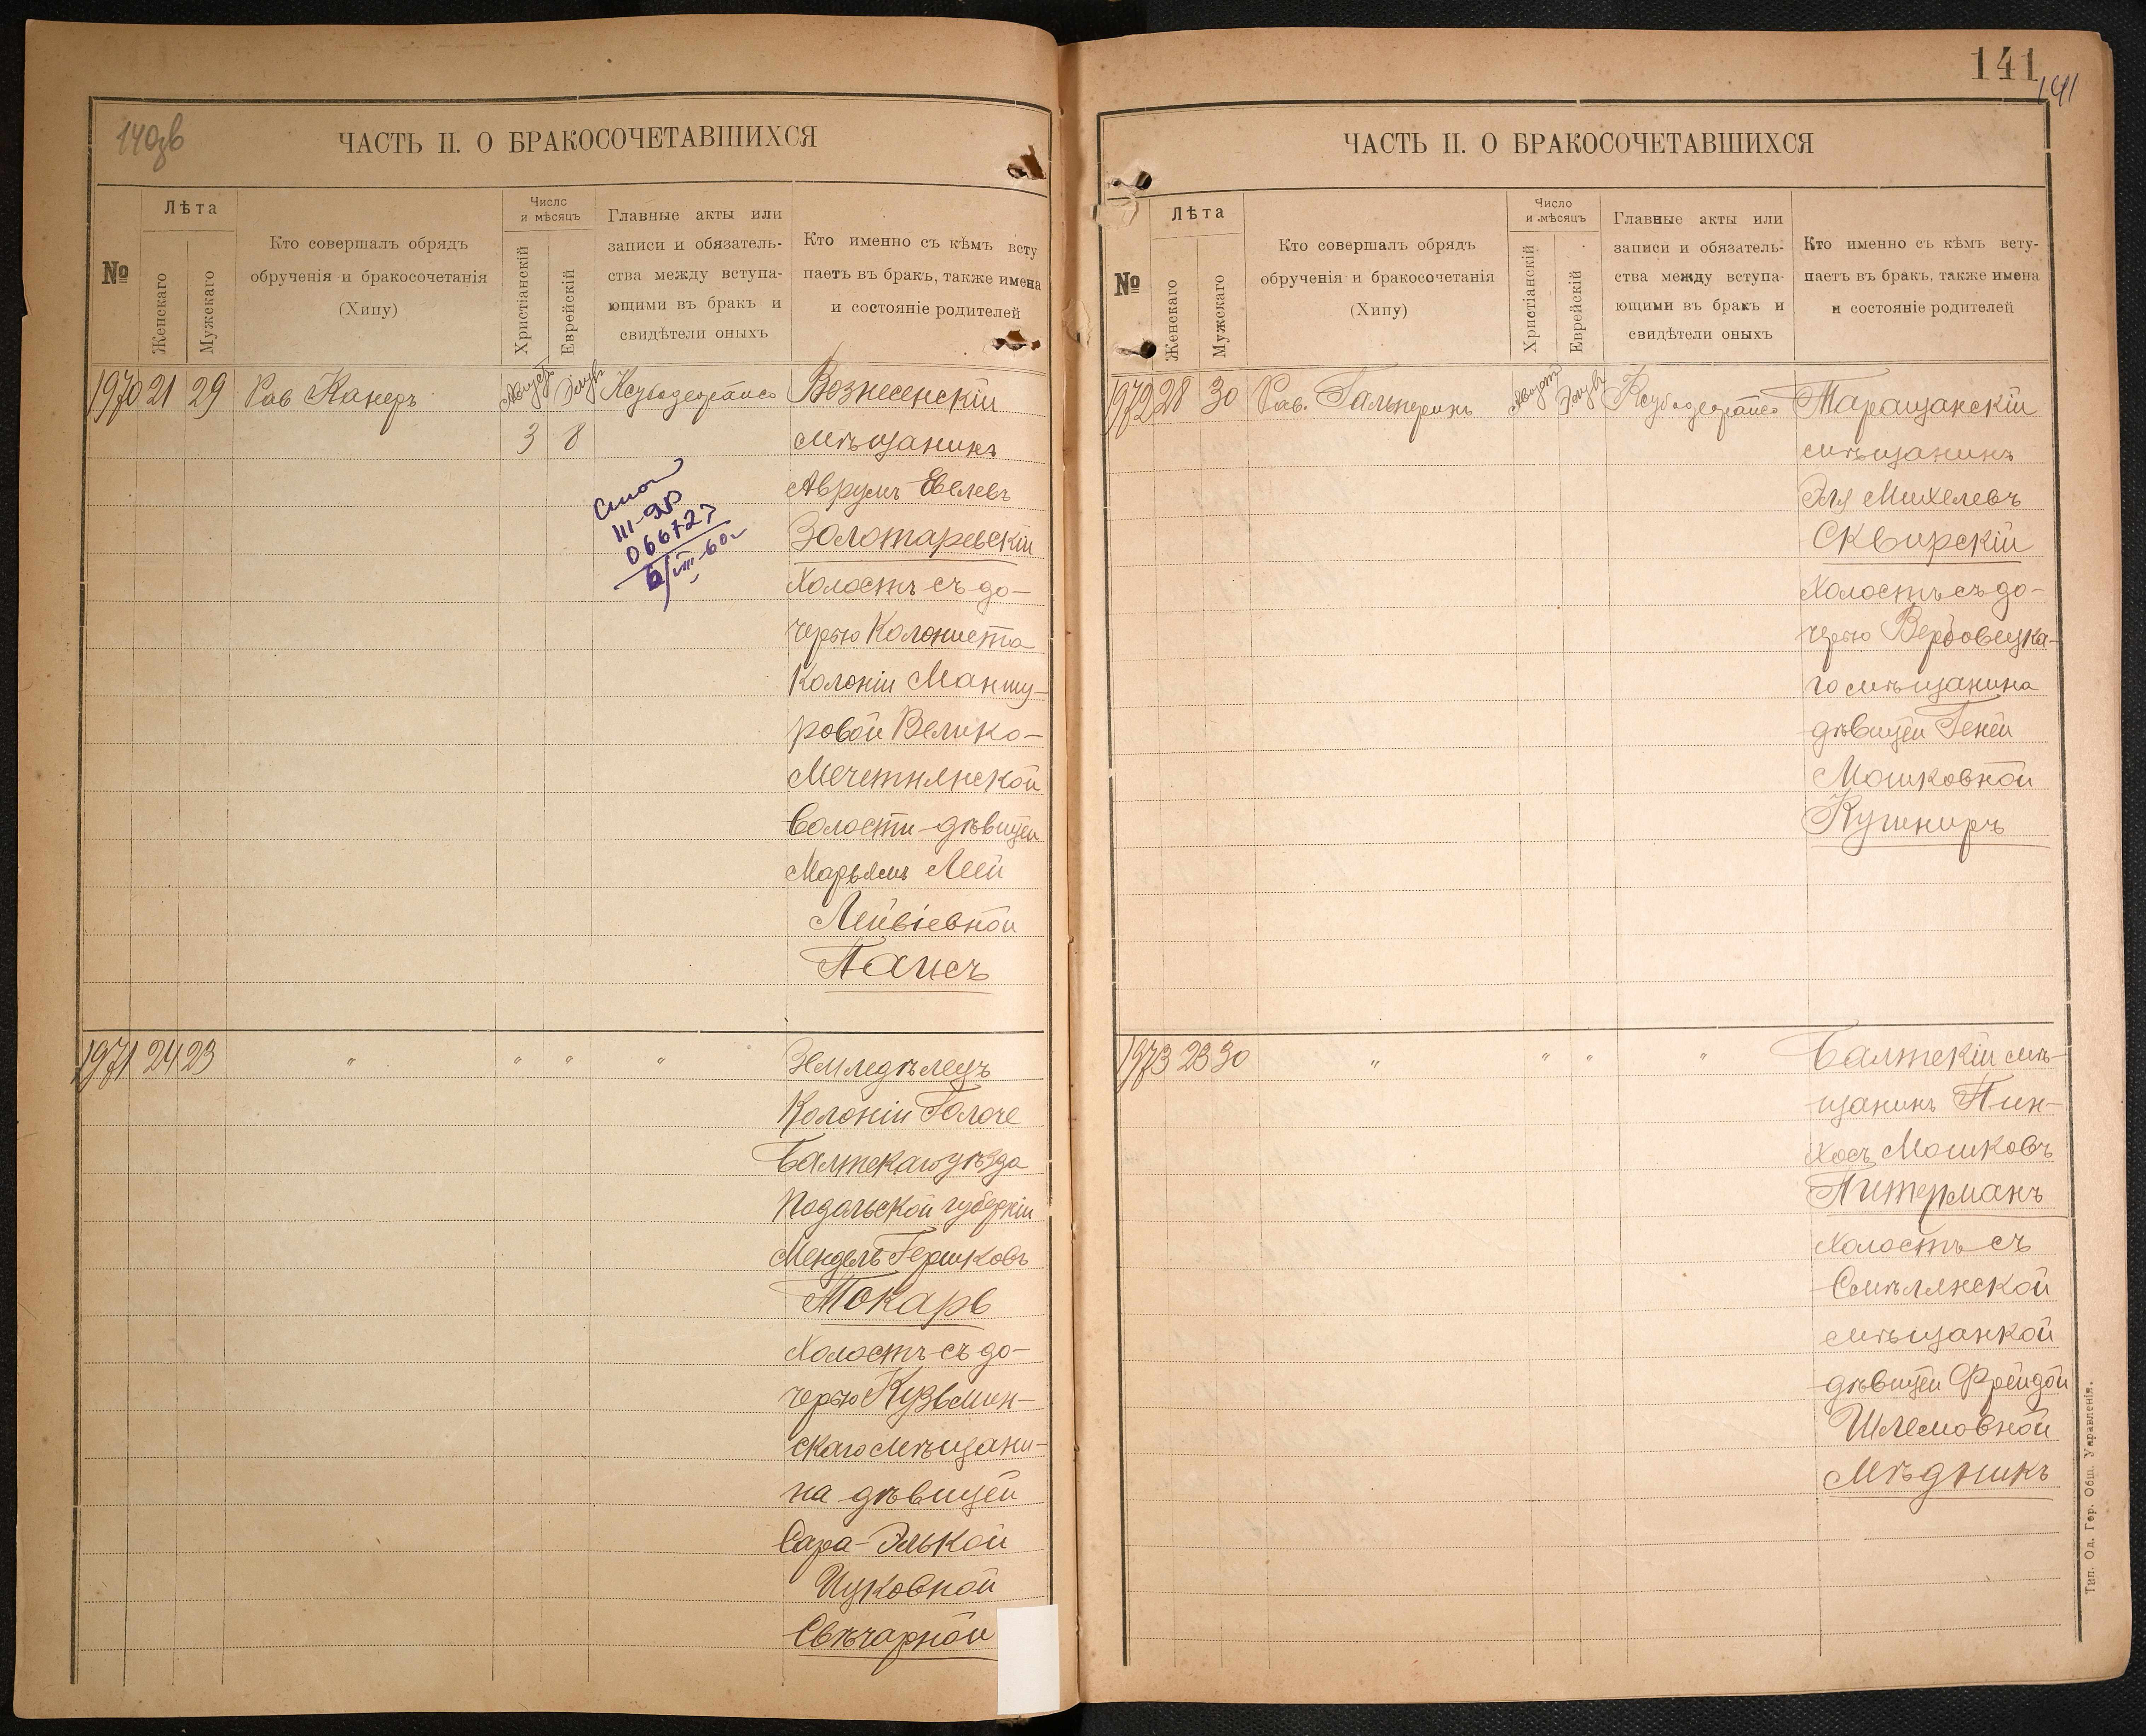 140зв
ЧАСТЬ II. О БРАКОСОЧЕТАВШИХСЯ
№
Лѣта
Женскаго
Мужскаго
Кто совершалъ обрядъ
обрученія и бракосочетанія
(Хипу)
Число
и мѣсяцъ
Христіанскій
Еврейскій
Главные акты или
записи и обязатель-
ства между вступа-
ющими въ бракъ и
свидѣтели оныхъ
Кто именно съ кѣмъ всту
паетъ въ бракъ, также имена
и состояніе родителей
1970 21 29 Рав Канеръ Август Элулъ Вознесенскій
3 8 мѣщанинъ
Аврумъ Евелевъ
Золотаревскій
холостъ съ до-
черью Колониста
Колоніи Маншу-
ровой Велико-
Мечетнянской
волости дѣвицей
Марьямъ Леей
Лейвіевной
Паисъ
III-ЯР
066727
6/VIII-60г
1971 24 23 " " " " Земледѣлецъ
Колоніи Голоче
Балтскаго уѣзда
Подольской губерніи
Мендель Гершковъ
Токарь
холостъ съ до-
черью Кузьмин-
скаго мѣщани-
на дѣвицей
Сара-Элькой
Ицковной
Свѣчарной
141
141
ЧАСТЬ II. О БРАКОСОЧЕТАВШИХСЯ
№
Лѣта
Женскаго
Мужскаго
Кто совершалъ обрядъ
обрученія и бракосочетанія
(Хипу)
Число
и мѣсяцъ
Христіанскій
Еврейскій
Главные акты или
записи и обязатель-
ства между вступа-
ющими въ бракъ и
свидѣтели оныхъ
Кто именно съ кѣмъ всту-
паетъ въ бракъ, также имена
и состояніе родителей
1972 28 30 Рав. Гальперинъ Август Элулъ Таращанскій
мѣщанинъ
Эля Михелевъ
Сквирскій
холостъ съ до-
черью Вербовецка-
го мѣщанина
дѣвицей Геней
Мошковной
Кушниръ
1973 23 30 " " " " Балтскій мѣ-
щанинъ Пин-
хосъ Мошковъ
Питерманъ
холостъ съ
Смѣлянской
мѣщанкой
дѣвицей Фрейдой
Шлемовной
Мѣдникъ
Тип. Од. Гор. Общ. Управленія.